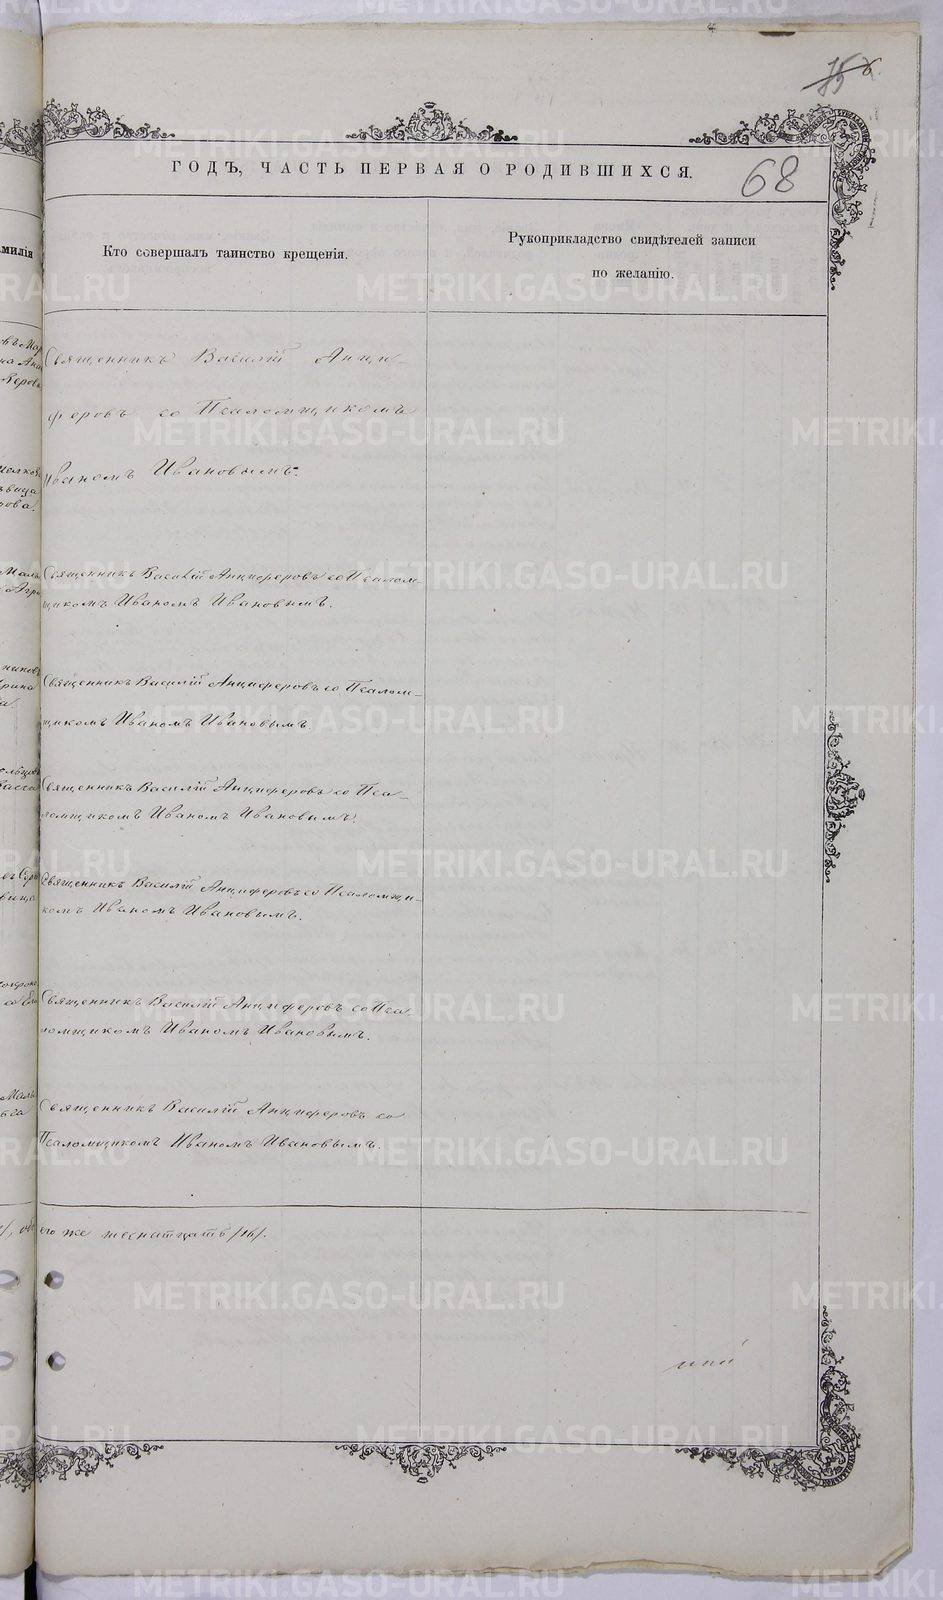 68
ГОДЪ, ЧАСТЬ ПЕРВАЯ О РОДИВШИХСЯ.
Кто совершалъ таинство крещенія.
Рукоприкладство свидѣтелей записи
по желанію.
милія
Священникъ Василій Анци-
феровъ со Псаломщикомъ
Иваномъ Ивановымъ.
Священникъ Василій Анциферовъ со Псалом-
щикомъ Иваномъ Ивановымъ.
Священникъ Василій Анциферовъ со Псалом-
щикомъ Иваномъ Ивановымъ.
Священникъ Василій Анциферовъ со Пса-
ломщикомъ Иваномъ Ивановымъ.
Священникъ Василій Анциферовъ со Псаломщи-
комъ Иваномъ Ивановымъ.
Священникъ Василій Анциферовъ со Пса-
ломщикомъ Иваномъ Ивановымъ.
Священникъ Василій Анциферовъ со
Псаломщикомъ Иваномъ Ивановымъ.
его же шеснатцать /16/.
METRIKI.GASO-URAL.RU